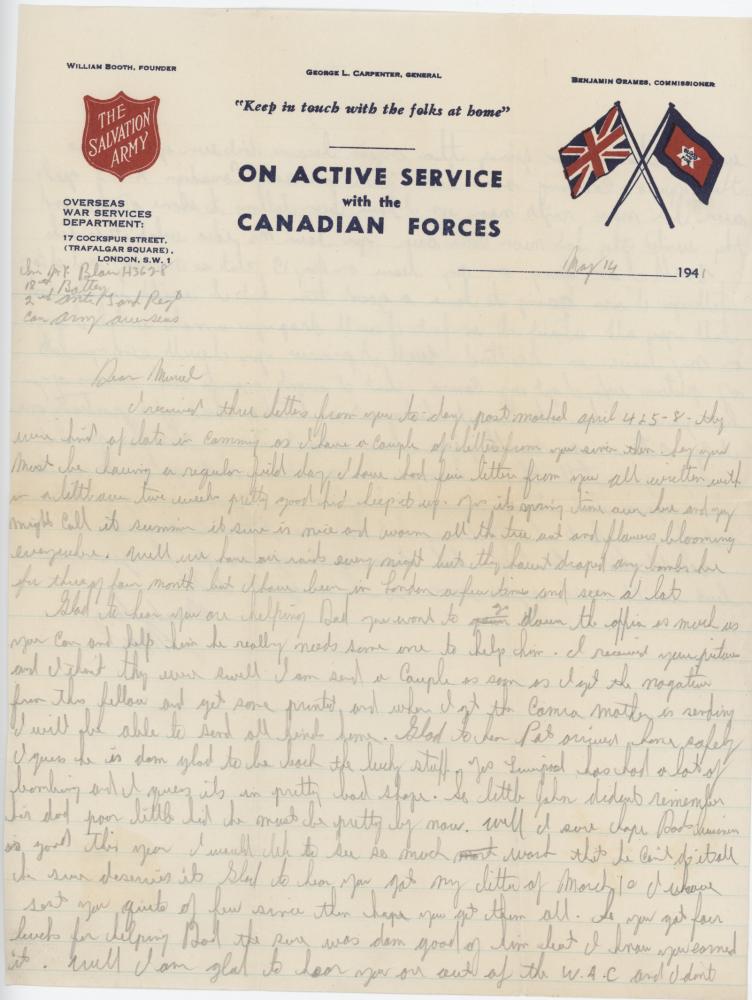 WILLIAM BOOTH, FOUNDER
GEORGE L. CARPENTER, GENERAL
BENJAMIN ORAMES, COMMISSIONER
THE
SALVATION
ARMY
"Keep in touch with the folks at home"
ON ACTIVE SERVICE
with the
CANADIAN FORCES
OVERSEAS
WAR SERVICES
DEPARTMENT:
17 COCKSPUR STREET,
(TRAFALGAR SQUARE),
LONDON, S.W. 1
May 14 1941
Blair H3628
18 Battery
2nd Anti Tank Regt
Can Army overseas
Dear Muriel
I received three letters from you to-day post marked april 4 & 5 - 8 - they
were kind of late in comming as I have a couple of letters from you since then hey you
must be having a regular field day I have had five letters from you all written with
in a little over two weeks pretty good kid keep it up. Yes its spring time over here and you
might call it summer it sure is nice and warm all the trees out and flowers blooming
everywhere. Well we have air raids every night but they havent droped any bombs here
for three or four month but I have been in London a few times and seen a lot
Glad to hear you are helping Dad you want to go down the office as much as
you can and help him he really needs some one to help him. I received your picture
and I thank they were swell I am send a couple as soon as I get the negative
from this fellow and get some printed and when I get the camra mother is sending
I will be able to send all kinds home. Glad to hear Pat arrived home safely
I guess he is dam glad to be back the lucky stuff. Yes Liverpool has had a lot of
bombing and I guess its in pretty bad shape. So little John dident remember
his dad poor little kid he must be pretty big now. Well I sure hope Dads business
is good this year I would like to see so much work that he can't do it all
he sure deserves it Glad to hear you got my letter of March 10 I have
sent you quite of few since then hope you get them all. So you got four
bucks for helping Dad the sure was dam good of him but I know you earned
it. Well I am glad to hear you are out of the W.A.C and I dont